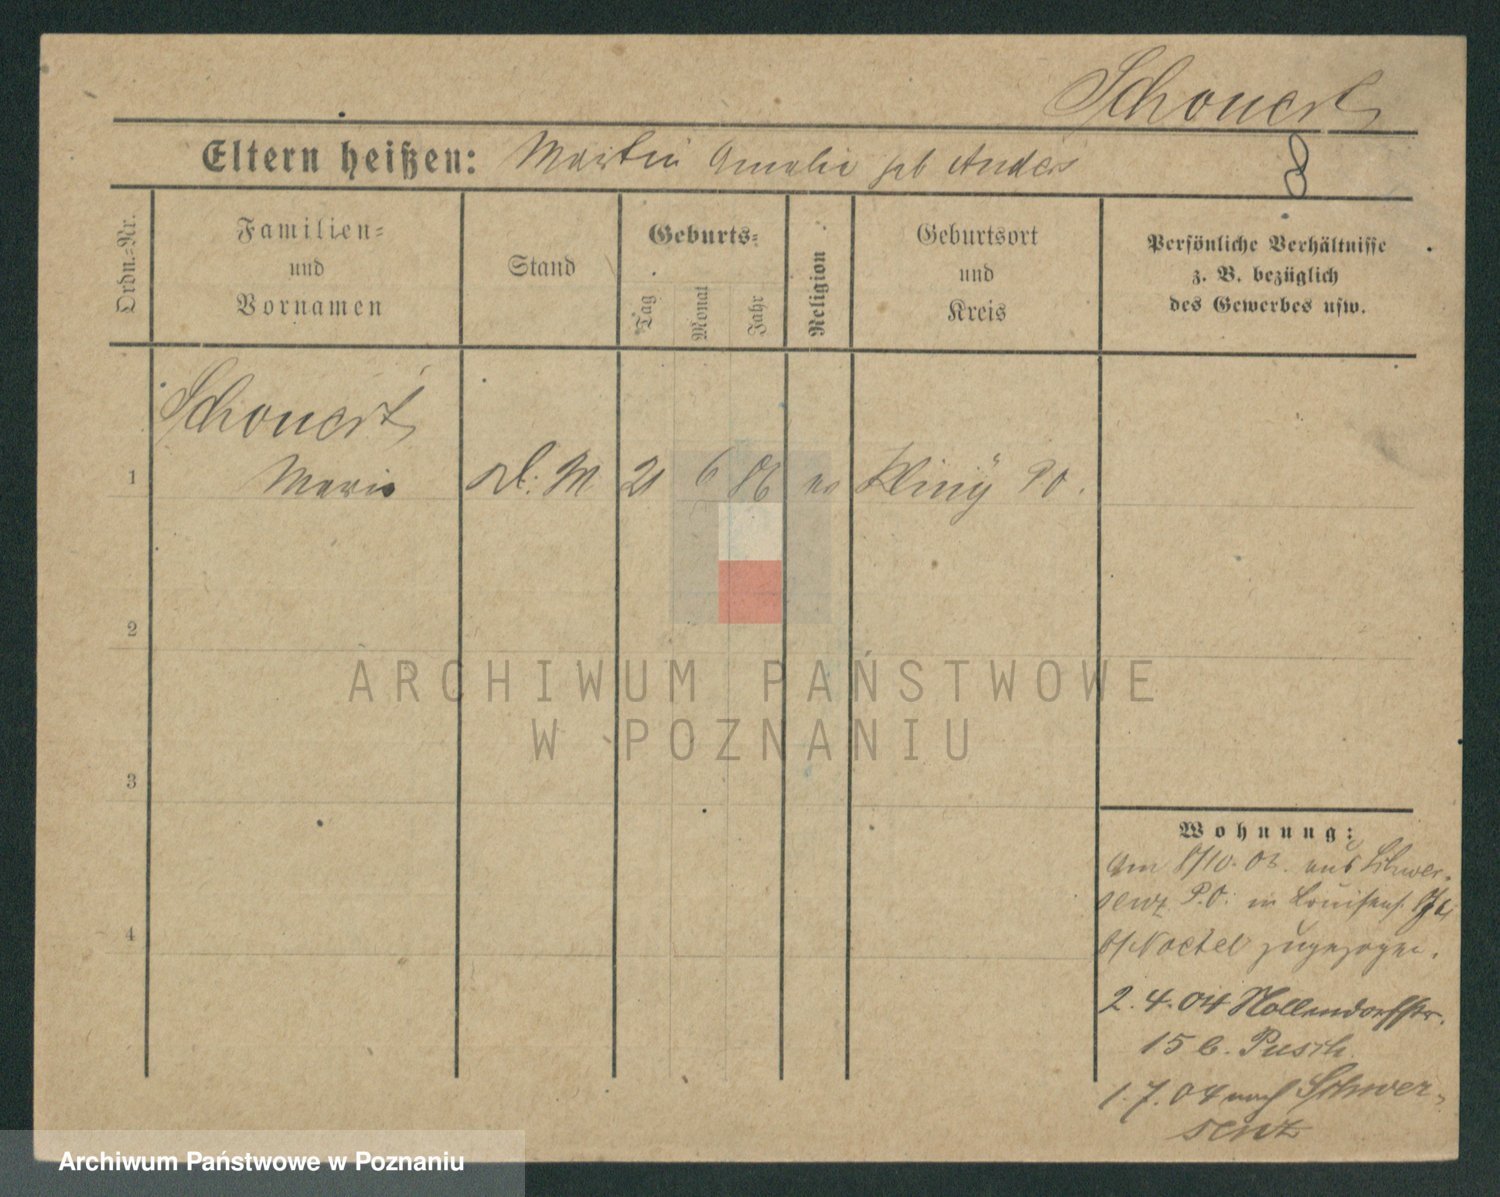 Schonert
Eltern heißen: Martin Amalie geb Anders
8
Ordn.-Nr.
Familien-
und
Vornamen
Stand
Geburts-
Tag
Monat
Jahr
Religion
Geburtsort
und
Kreis
Persönliche Verhältnisse
z. B. bezüglich
des Gewerbes usw.
Schonert
1 Marie D. M 21 6 86 ev PO.
2
3
4
ARCHIWUM PAŃSTWOWE
W POZNANIU
Wohnung:
Am aus Schwer-
senz P.O. in Louisens.
b/ zugezogen.
2.4.04 Nollendorfstr.
15 b. Pusch.
1.7.04 nach Schwer-
senz
Archiwum Państwowe w Poznaniu